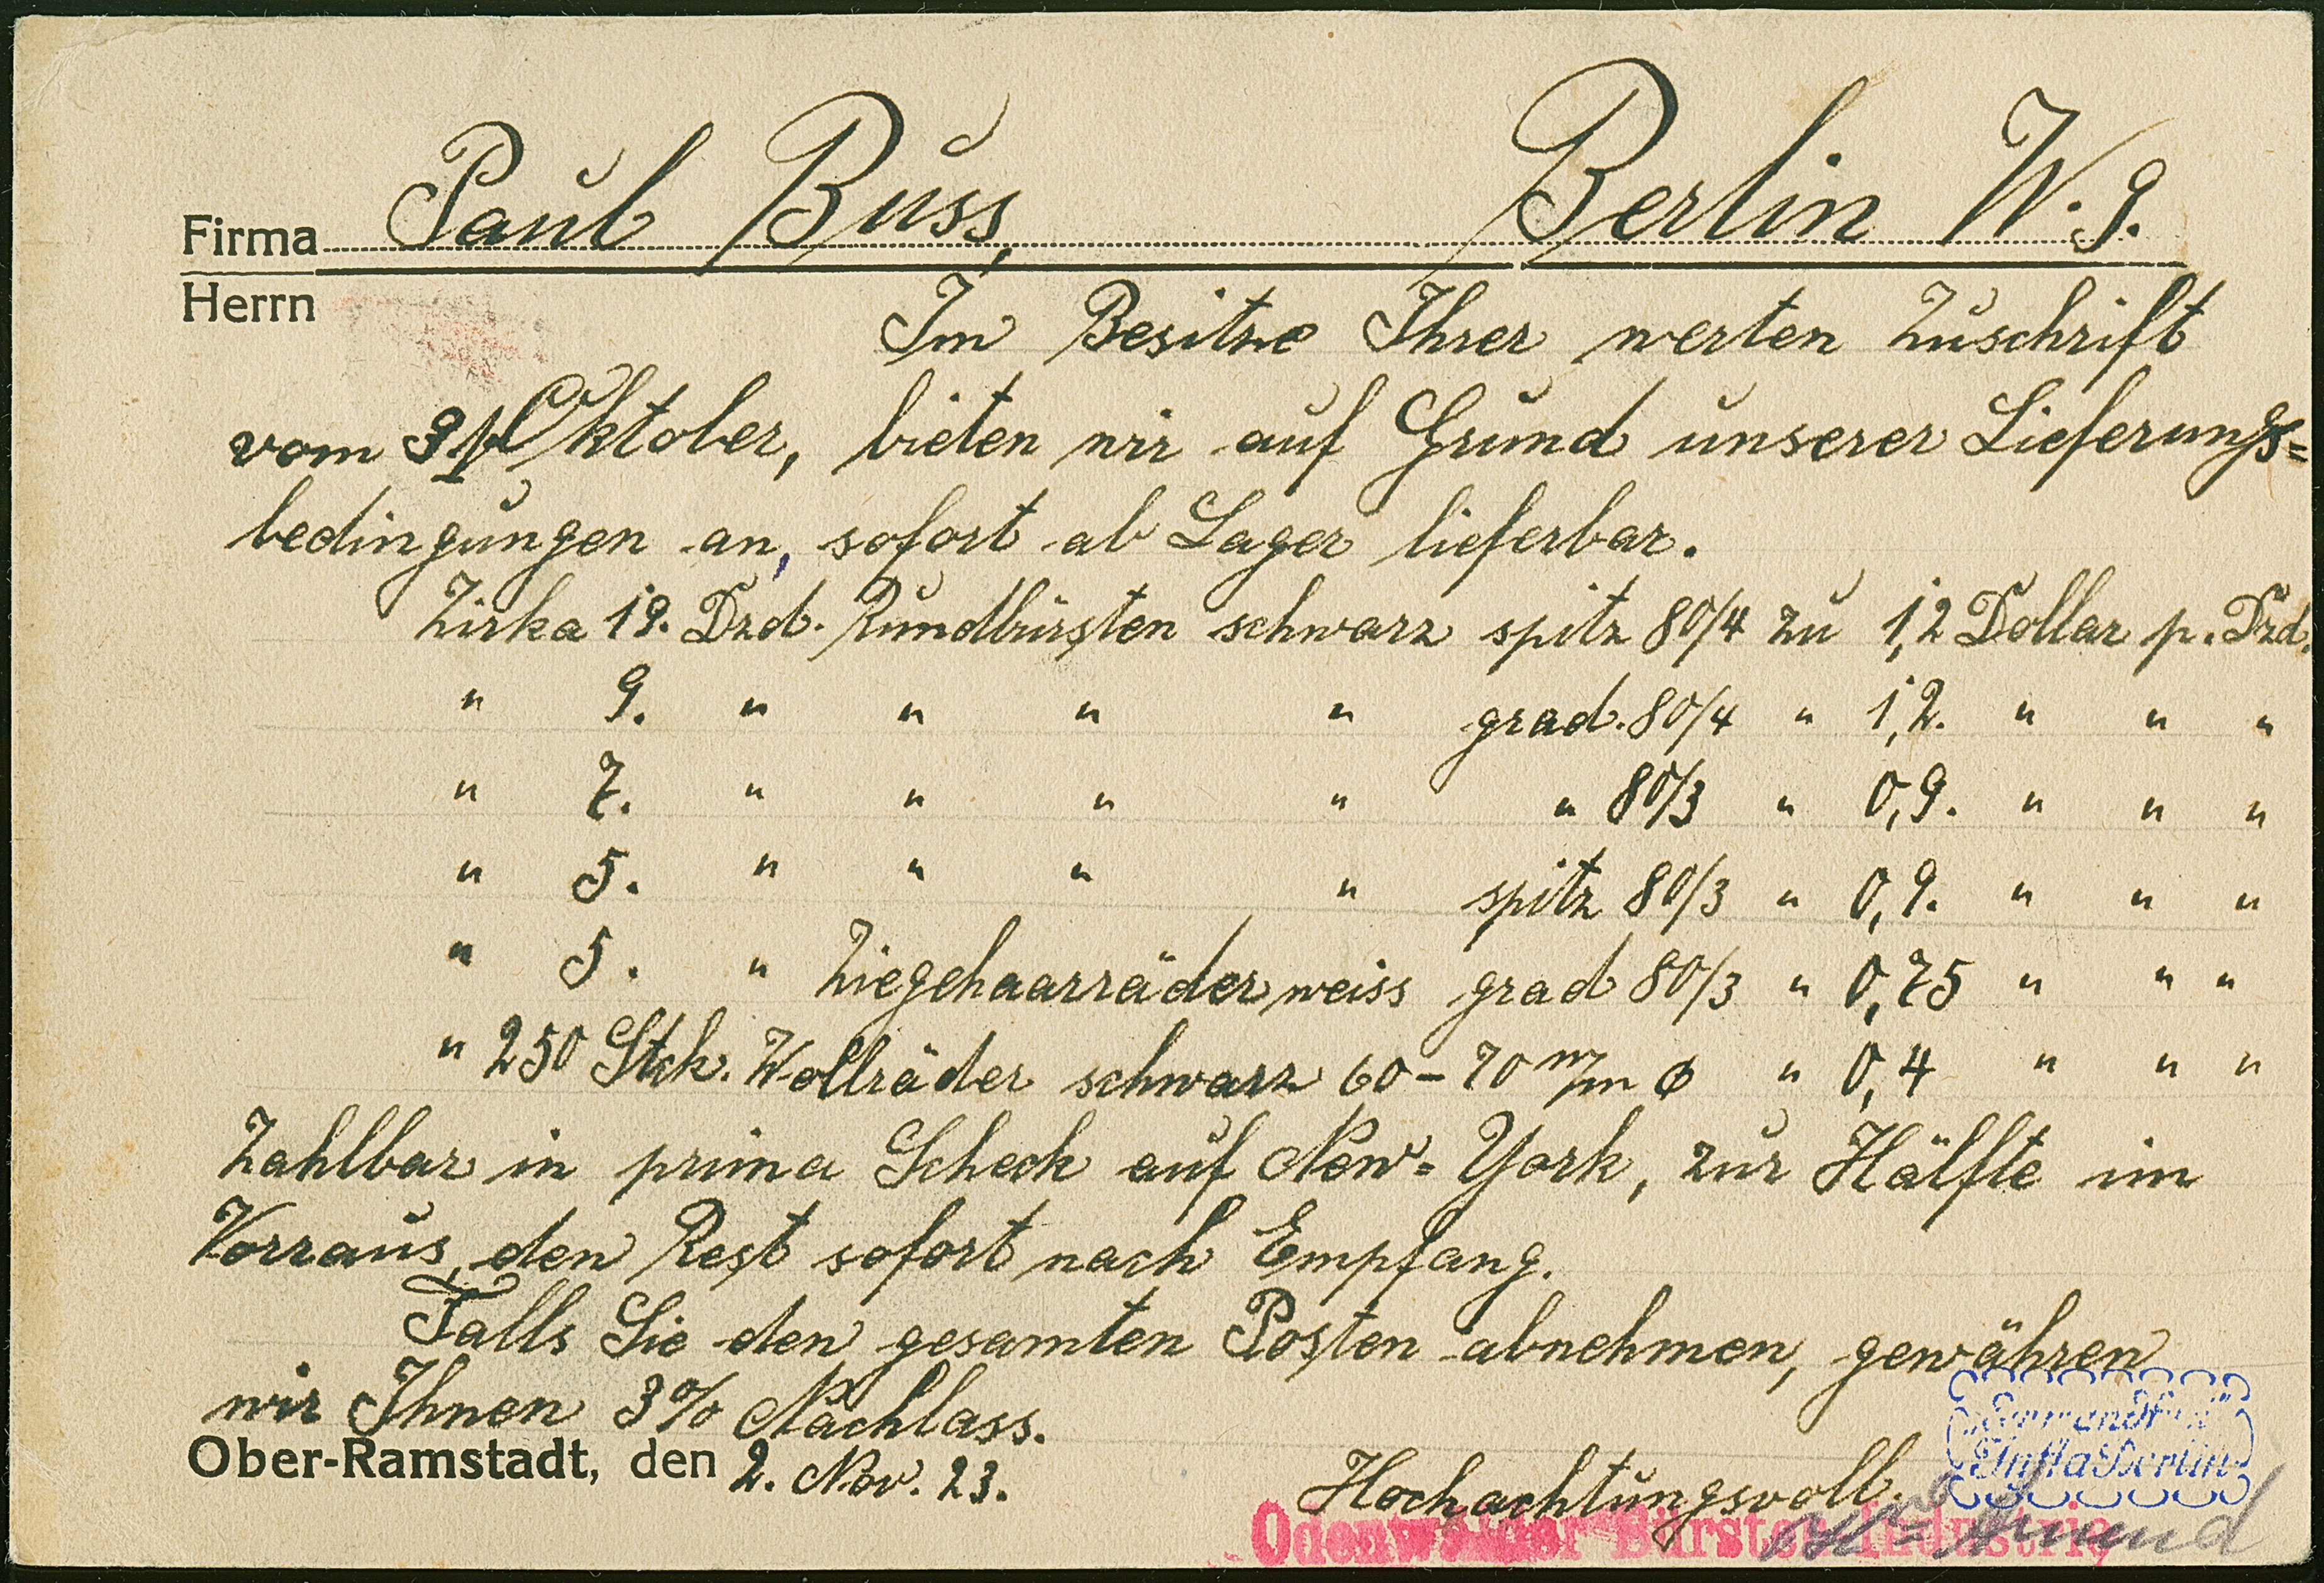 Firma Paul Buss, Berlin W. 9.
Herrn
Im Besitze Ihrer werten Zuschrift
vom 31. Oktober, bieten wir auf Grund unserer Lieferungs=
bedingungen an, sofort ab Lager lieferbar.
Zirka 19. Dzd. Rundbürsten schwarz spitz 80/4 zu 1,2 Dollar p. Dzd.
" 9. " " " " grad. 80/4 " 1,2. " " "
" 7. " " " " " 80/3 " 0,9. " " "
" 5. " " " " spitz 80/3 " 0,9. " " "
" 5. " Ziegehaarräder weiss grad 80/3 " 0,75 " " "
" 250 Stck. Wollräder schwarz 60-70 m/m ø " 0,4 " " "
Zahlbar in prima Scheck auf New=York, zur Hälfte im
Vorraus, den Rest sofort nach Empfang.
Falls Sie den gesamten Posten abnehmen, gewähren
wir Ihnen 3% Nachlass.
Ober-Ramstadt, den 2. Nov. 23.
Hochachtungsvoll.
Odenwälder Bürsten-Industrie
Infla Berlin